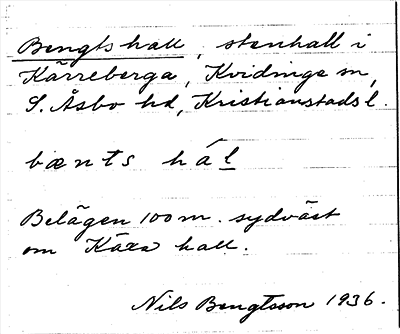 Bengts hall, stenhall i
Kärreberga, Kvidinge sn,
S. Åsbo hd, Kristianstads l.
bænts hál
Belägen 100 m. sydväst
om Kära hall.
Nils Bengtsson 1936.